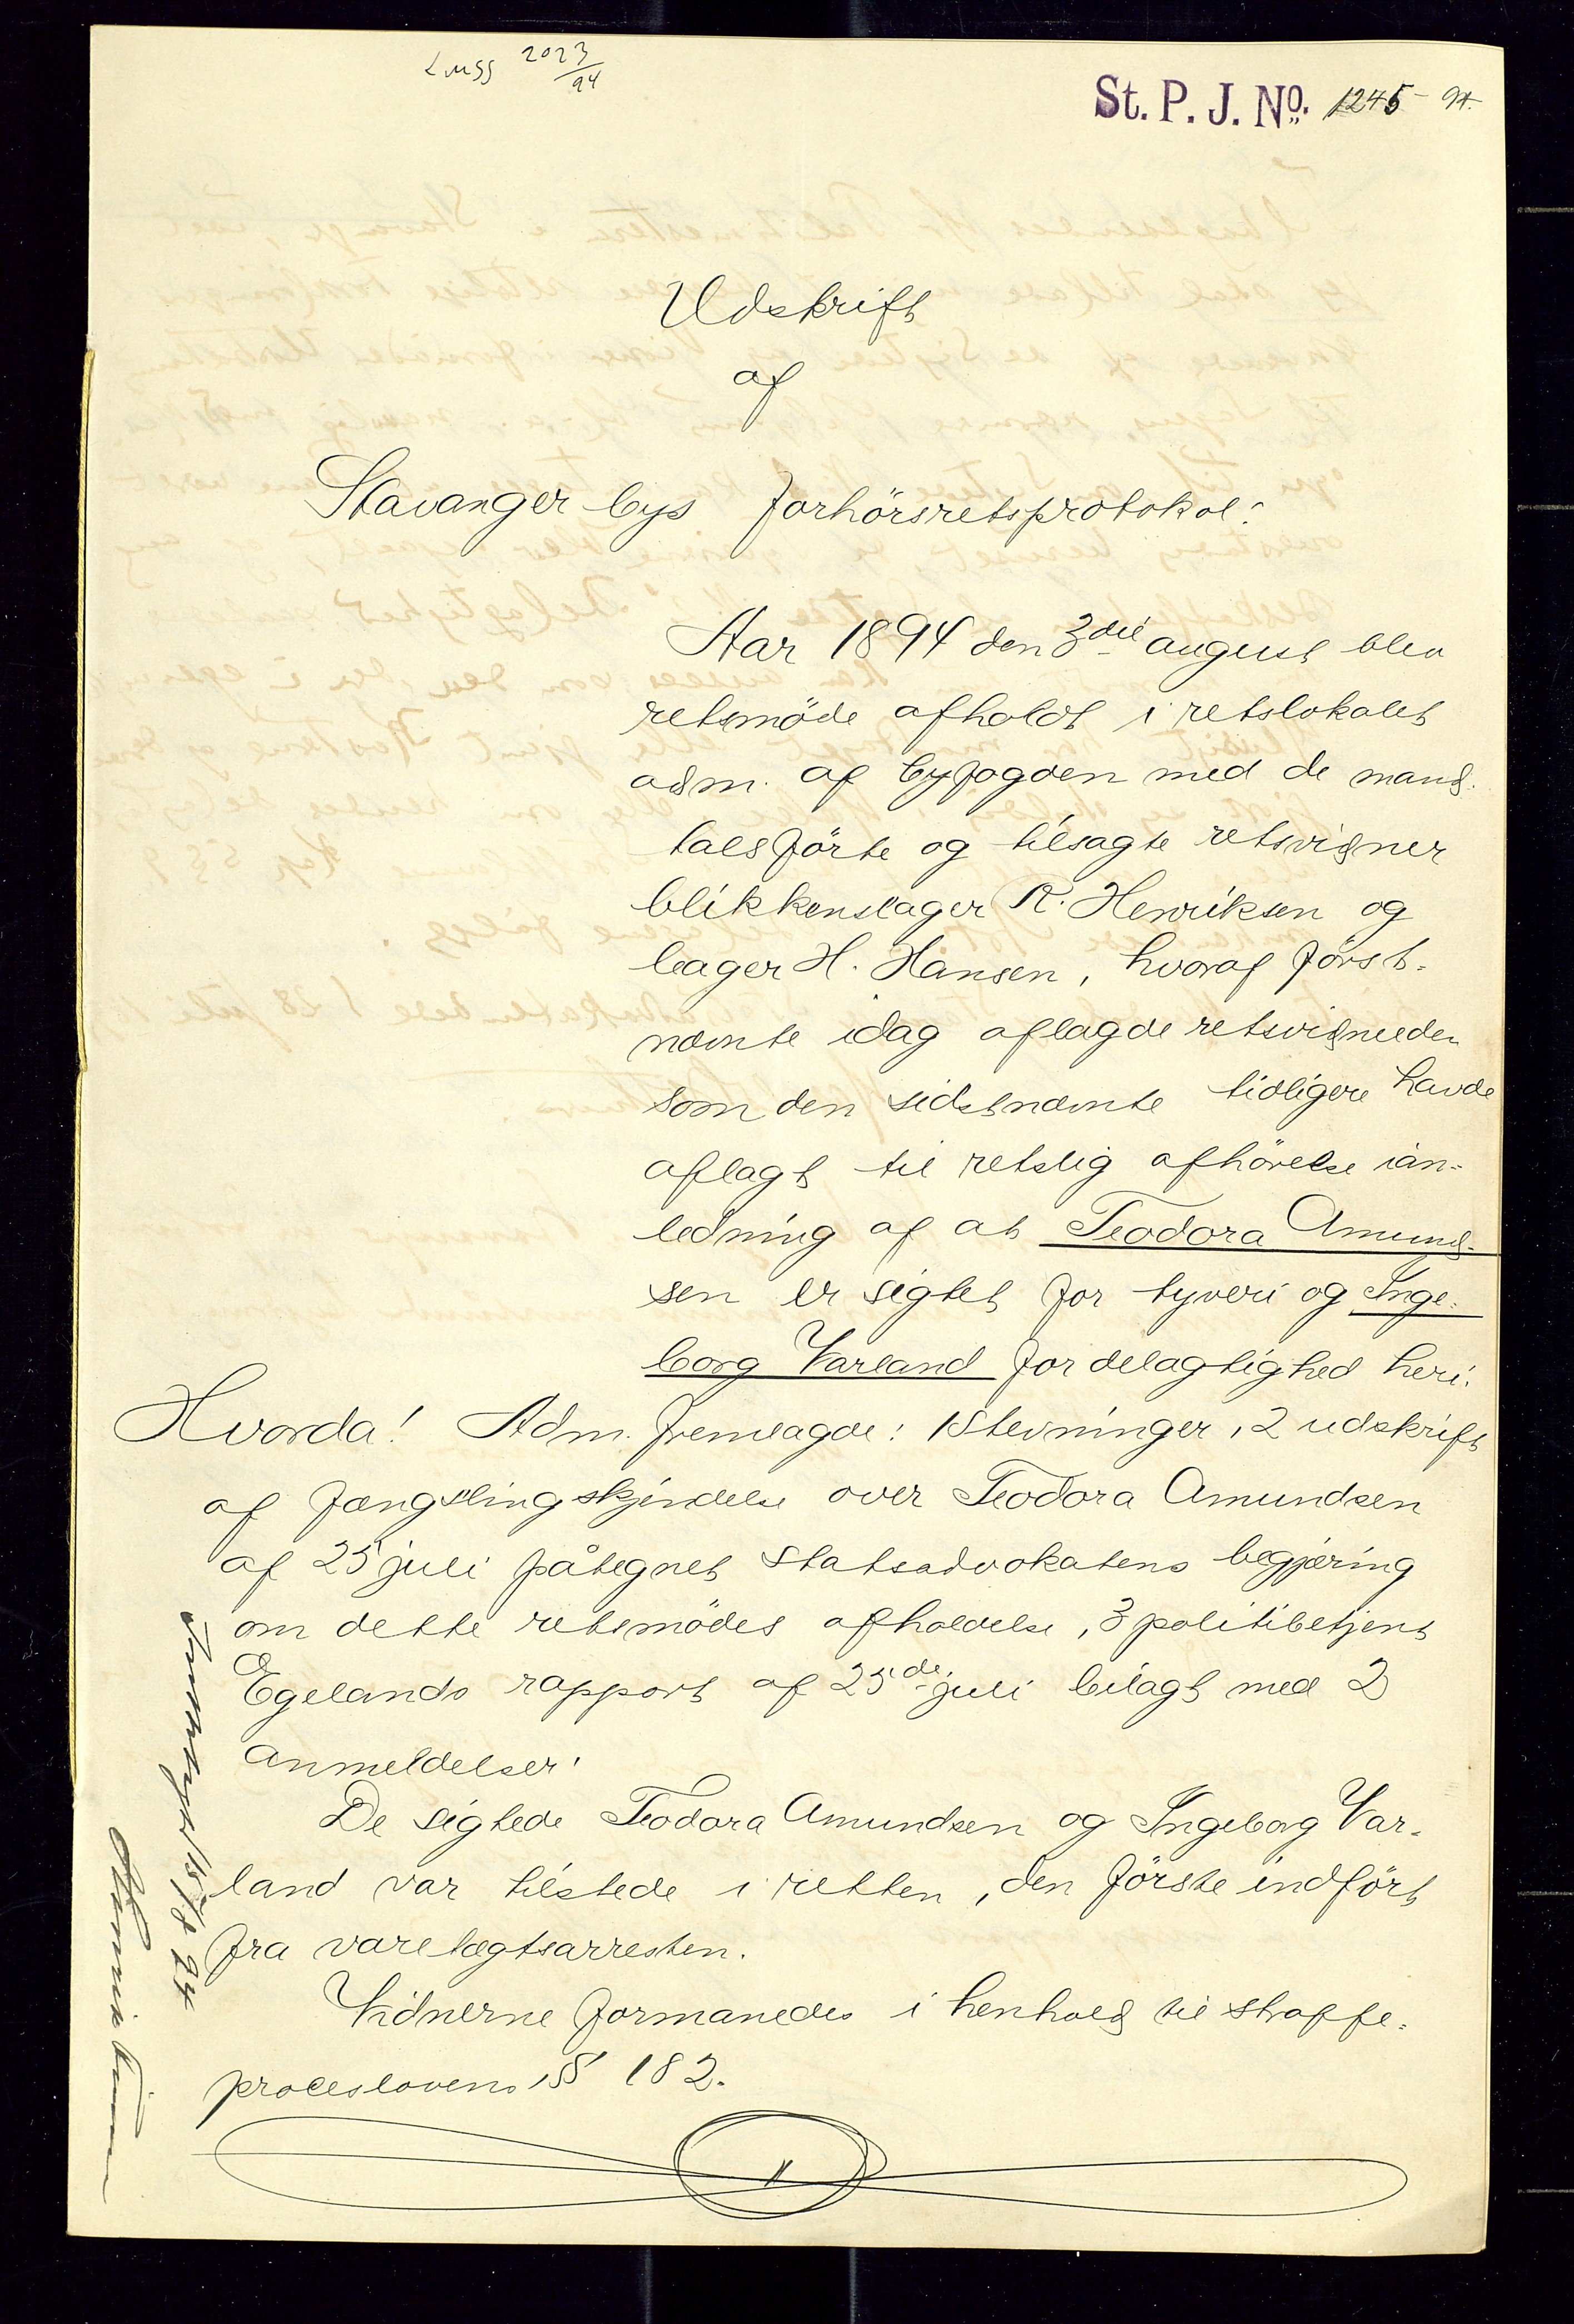 2023/94
St. P. J. No. 1245 - 94.
Udskrift
af
Stavanger bys forhörsretsprotokol:
Aar 1894 den 3die august blev
retsmöde afholdt i retslokalet
adm. af byfogden med de mand-
talsförte og tilsagte retsvidner
blikkenslager R. Henriksen og
bager H. Hansen, hvoraf först-
nævnte idag aflagde retsvidneeden
som den sidstnævnte tidligere havde
aflagt til retslig afhörelse ian-
ledning af at Teodora Amund-
sen er sigtet for tyveri og Inge-
borg Varland for delagtighed heri.
Hvorda! Adm. fremlagde: 1 Stevninger, 2 udskrift
af fængslingskjendelse over Teodora Amundsen
af 25 juli påtegnet statsadvokatens begjæring
om dette retsmödes afholdelse, 3 politibetjent
Egelands rapport af 25de juli bilagt med 2
anmeldelser.
De sigtede Teodora Amundsen og Ingeborg Var-
land var tilstede i retten, den förste indfört
fra varetægtsarresten.
Vidnerne formanedes i henhold til straffe-
proceslovens § 182.
15/8 94